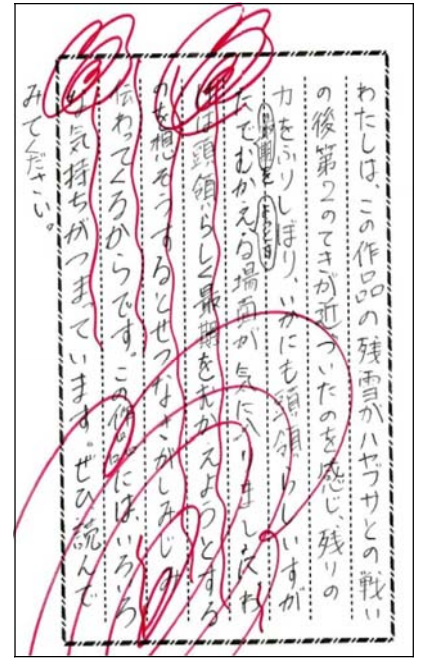 わたしは、この作品の残雪がハヤブサとの戦い
の後第2のてきが近づいたのを感じ、残りの
力をふりしぼり、いかにも頭領らしいすが
たでむかえる場面が気に入りました。わ
けは頭領らしく最期をむかえようとする
のを想ぞうするとせつなさがしみじみ
伝わってくるからです。この作品には、いろいろ
な気持ちがつまっています。ぜひ読んで
みてください。